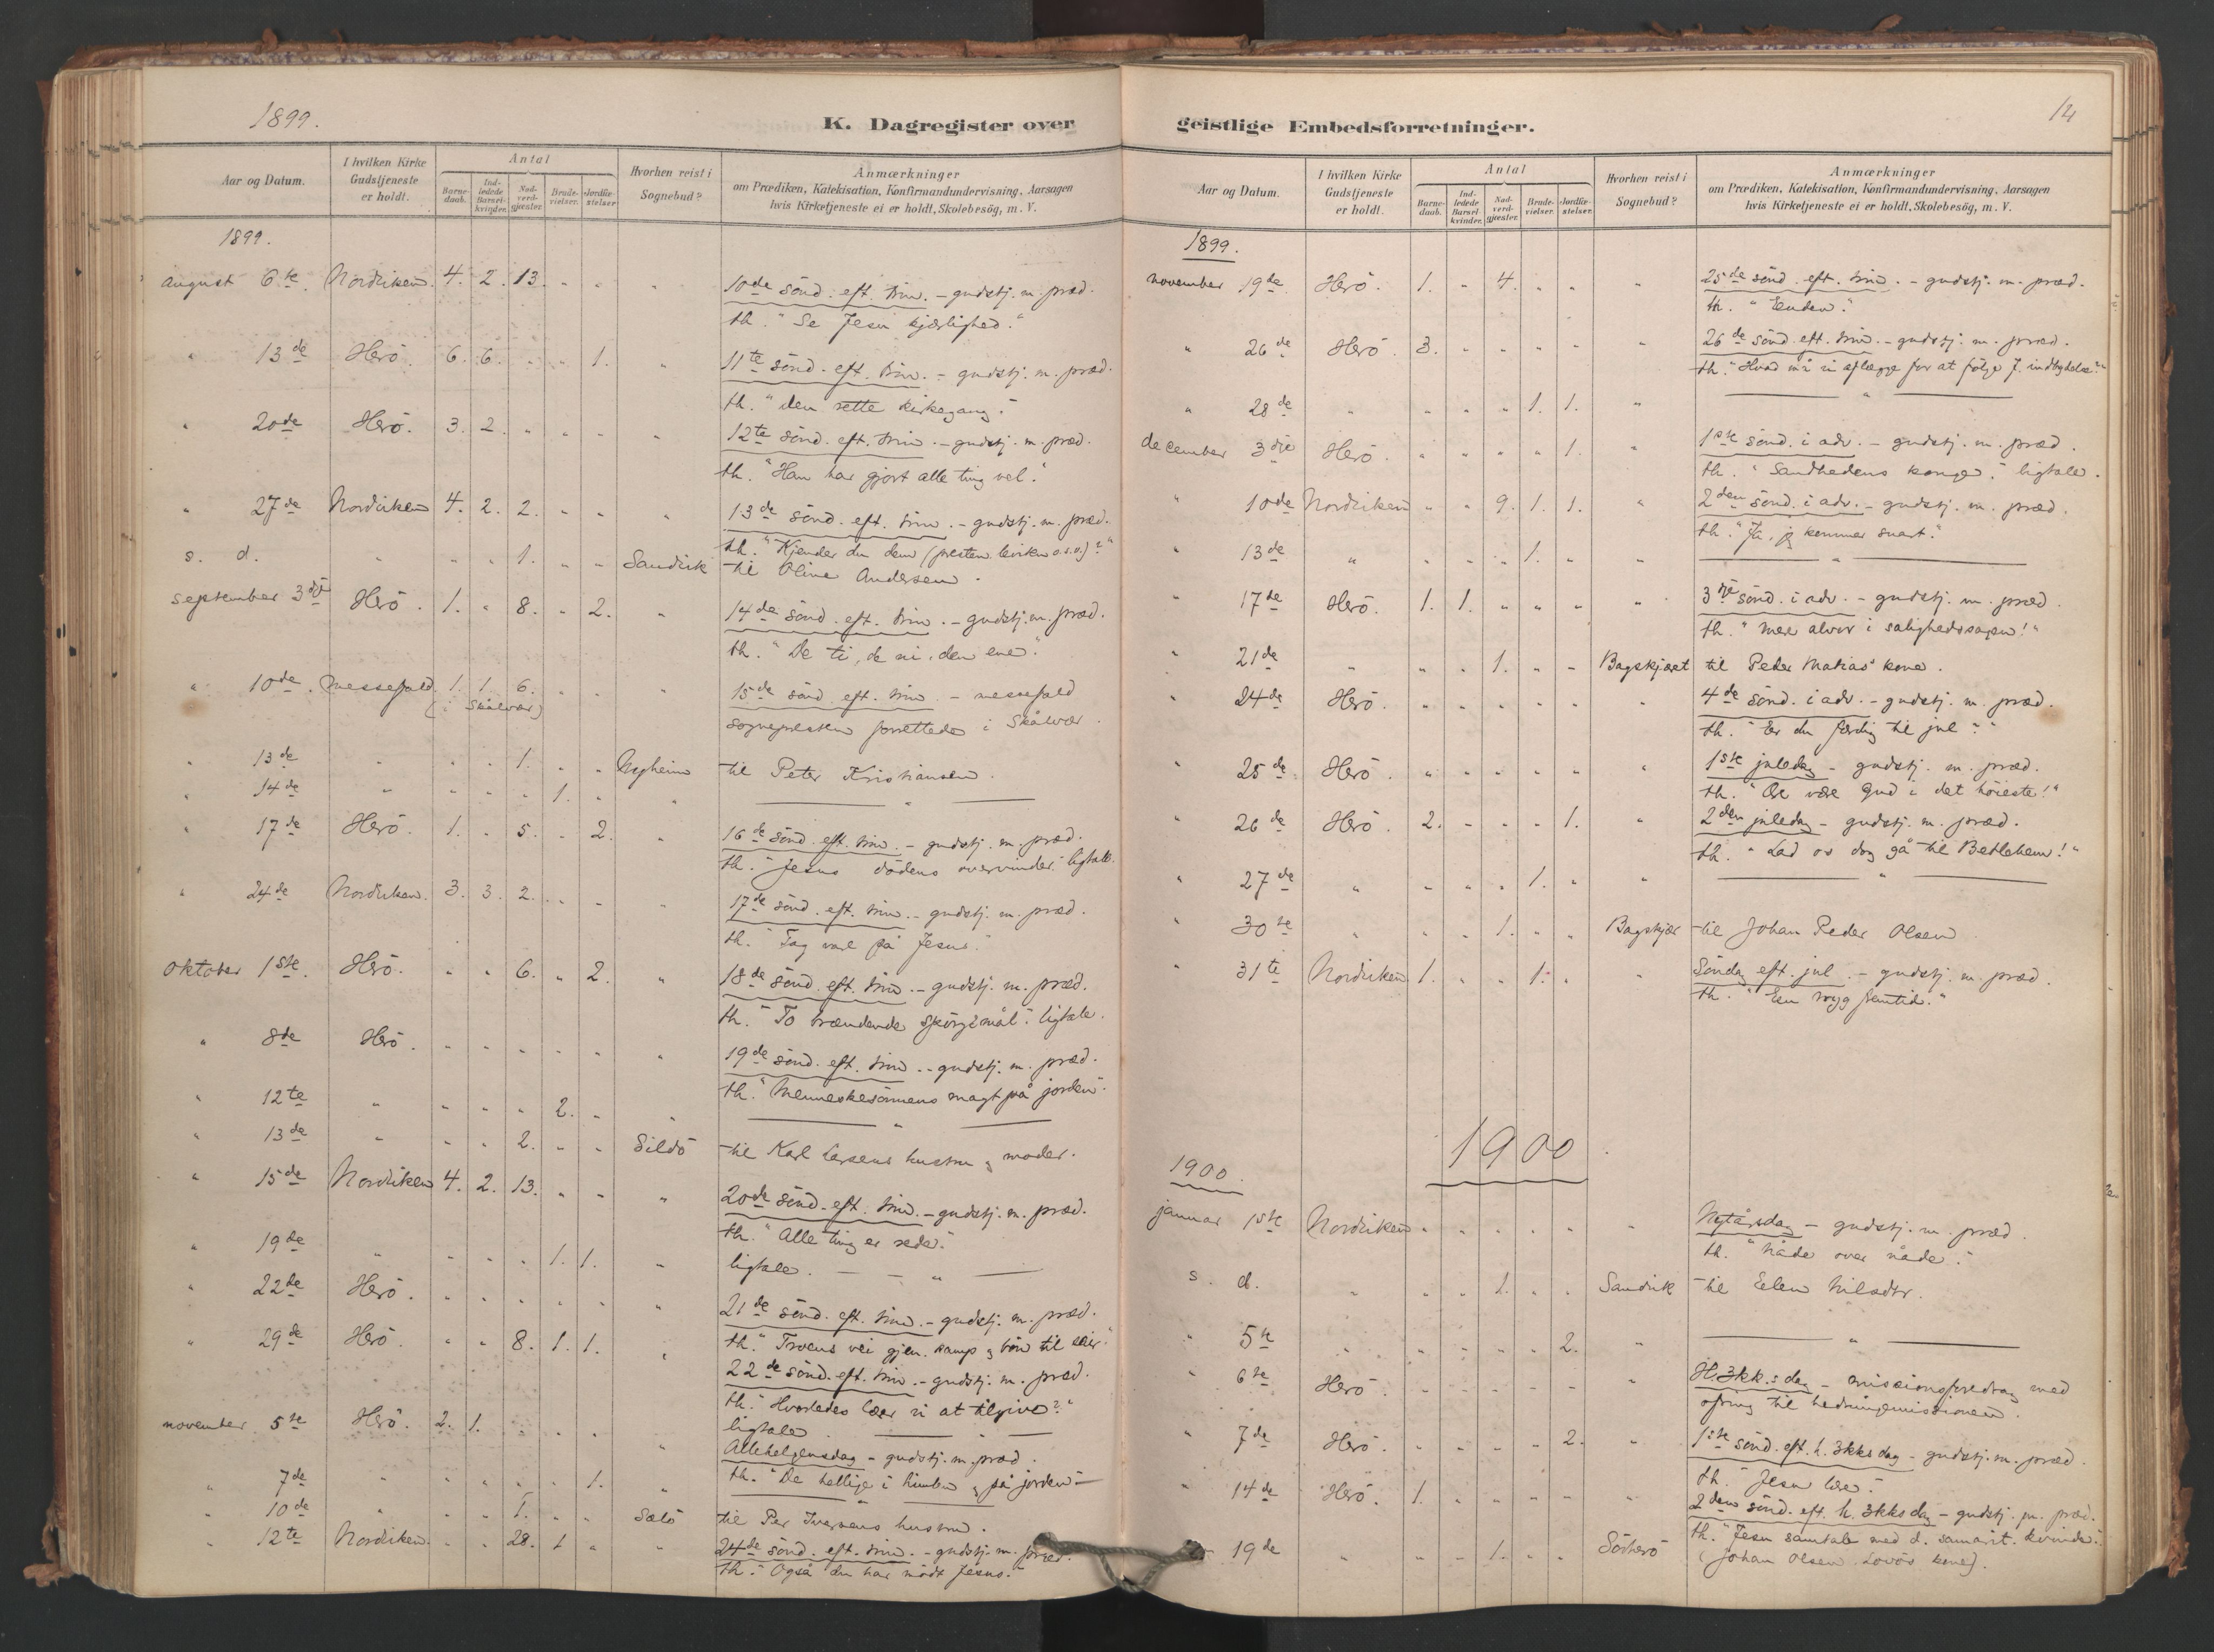 1899.
K. Dagregister over
Aar og Datum.
I hvilken Kirke Gudstjeneste er holdt.
Antal
Barne-daab.
Ind-ledede Barsel-kvinder.
Nad-verd-gjæster.
Brude-vielser.
Jordfæ-stelser.
Hvorhen reist i Sognebud?
Anmærkninger
om Prædiken, Katekisation, Konfirmandundervisning, Aarsagen
hvis Kirketjeneste ei er holdt, Skolebesög, m. V.
1899.
august 6te. Nordviken. 4. 2. 13. " " " 10de sönd. eft. trin. - gudstj. m. præd.
th. "Se Jesu kjærlighed."
" 13de Herö. 6. 6. " " 1. " 11te sönd. eft. trin. - gudstj. m. præd.
th. "den rette kirkegang."
" 20de Herö. 3. 2. " " " " 12te sönd. eft. trin. - gudstj. m. præd.
th. "Han har gjort alle ting vel."
" 27de Nordviken 4. 2. 2. " " " 13de sönd. eft. trin. - gudstj. m. præd.
th. "Kjender du dem (presten leviten o.s.v.)?"
s. d. " " " 1. " " Sandvik til Oline Andersen.
september 3dje Herö. 1. " 8. " 2. " 14de sönd. eft. trin. - gudstj. m. præd.
th. "De ti, de ni, den ene."
" 10de. messefald 1. 1. 6. " " " 15de sönd. eft. trin. - messefald
(i Skålvær)
sognepresten forrettede i Skålvær.
" 13de " " " 1. " " Nyheim til Peter Kristiansen.
" 14de " " " " 1. " " "
" 17de Herö. 1. " 5. " 2. " 16de sönd. eft. trin. - gudstj. m. præd.
th. "Jesus dödens overvinder." ligtale.
" 24de Nordviken. 3. 3. 2. " " " 17de sönd. eft. trin. - gudstj. m. præd.
th. "Tag vare på Jesus."
oktober 1ste. Herö. " " 6. " 2. " 18de sönd. eft. trin. - gudstj. m. præd.
th. "To brændende spörgsmål." ligtale.
" 8de Herö. " " " " " " 19de sönd. eft. trin. - gudstj. m. præd.
th. "Menneskesönnens magt på jorden."
" 12te " " " " 2. " " "
" 13de " " " 2. " " Sildö til Karl Larsens hustru & moder.
" 15de Nordviken 4. 2. 13. " " " 20de sönd. eft. trin. - gudstj. m. præd.
th. "Alle ting er rede."
" 19de " " " " 1. 1. " ligtale. "
" 22de Herö. " " " " " " 21de sönd. eft. trin. - gudstj. m. præd.
th. "Troens vei gjen. kamp & bön til seir."
" 29de Herö. " " 8. 1. 1. " 22de sönd. eft. trin. - gudstj. m. præd.
th. "Hvorledes lærer vi at tilgive?"
ligtale "
november 5te Herö. 2. 1. " " " " Allehelgensdag - gudstj. m. præd.
th. "De hellige i himlen & på jorden"
" 7de " " " " " 1. " "
" 10de " " " 1. " " til Per Iversens hustru.
" 12te Nordviken. " " 28. 1 " " 24de sönd. eft. trin. - gudstj. m. præd.
th. "Også du har mödt Jesus."
14
geistlige Embedsforretninger.
Aar og Datum.
I hvilken Kirke Gudstjeneste er holdt.
Antal
Barne-daab.
Ind-ledede Barsel-kvinder.
Nad-verd-gjæster.
Brude-vielser.
Jordfæ-stelser.
Hvorhen reist i Sognebud?
Anmærkninger
om Prædiken, Katekisation, Konfirmandundervisning, Aarsagen
hvis Kirketjeneste ei er holdt, Skolebesög, m. V.
1899.
november 19de Herö. 1. " 4. " " " 25de sönd. eft. trin. - gudstj. m. præd.
th. "Enden."
" 26de Herö. 3. " " " " " 26de sönd. eft. trin. - gudstj. m. præd.
th. "Hvad må vi aflægge for at fölge J. indbydelse?"
" 28de " " " " 1. 1. " "
december 3dje Herö. " " " " 1. " 1ste sönd. i adv. - gudstj. m. præd.
th. "Sandhedens konge." ligtale.
" 10de Nordviken " " 9. 1. 1. " 2den sönd. i adv. - gudstj. m. præd.
th. "Ja, jeg kommer snart."
" 13de " " " " 1. " " "
" 17de Herö. 1. 1. " " " " 3dje sönd. i adv. - gudstj. m. præd.
th. "mere alvor i salighedssagen!"
" 21de " " " 1. " " Bagskjæret til Peder Matias' kone.
" 24de Herö. " " " " " " 4de sönd. i adv. - gudstj. m. præd.
th. "Er du færdig til jul?"
" 25de. Herö. " " " " " " 1ste juledag - gudstj. m. præd.
th. "Ære være Gud i det höieste!"
" 26de Herö. 2. " " " 1. " 2den juledag - gudstj. m. præd.
th. "Lad os dog gå til Betlehem!"
" 27de " " " " 1. " " "
" 30te " " " 1. " " Bagskjær til Johan Peder Olsen
" 31te Nordviken 1. " " 1. " " Söndag eft. jul. - gudstj. m. præd.
th. "En tryg fremtid."
1900
1900.
januar 1ste Nordviken " " " " " " Nytårsdag - gudstj. m. præd.
th. "Nåde over nåde."
s. d. " " " 1. " " Sandvik til Elen Nilsdtr.
" 5te " " " " " 2. " "
" 6te Herö. " " " " " " H. 3kk.s dag - missionsforedrag med
ofring til hedningemissionen.
" 7de Herö. " " " " 2. " 1ste sönd. eft. h. 3kks dag - gudstj. m. præd.
th. "Jesu lære."
" 14de Herö. 1. " " " " " 2den sönd. eft. h. 3kks dag - gudstj. m. præd.
th. "Jesu samtale med d. samarit. kvinde."
19de " " " 1. " " Sörherö (Johan Olsen Lovös kone).